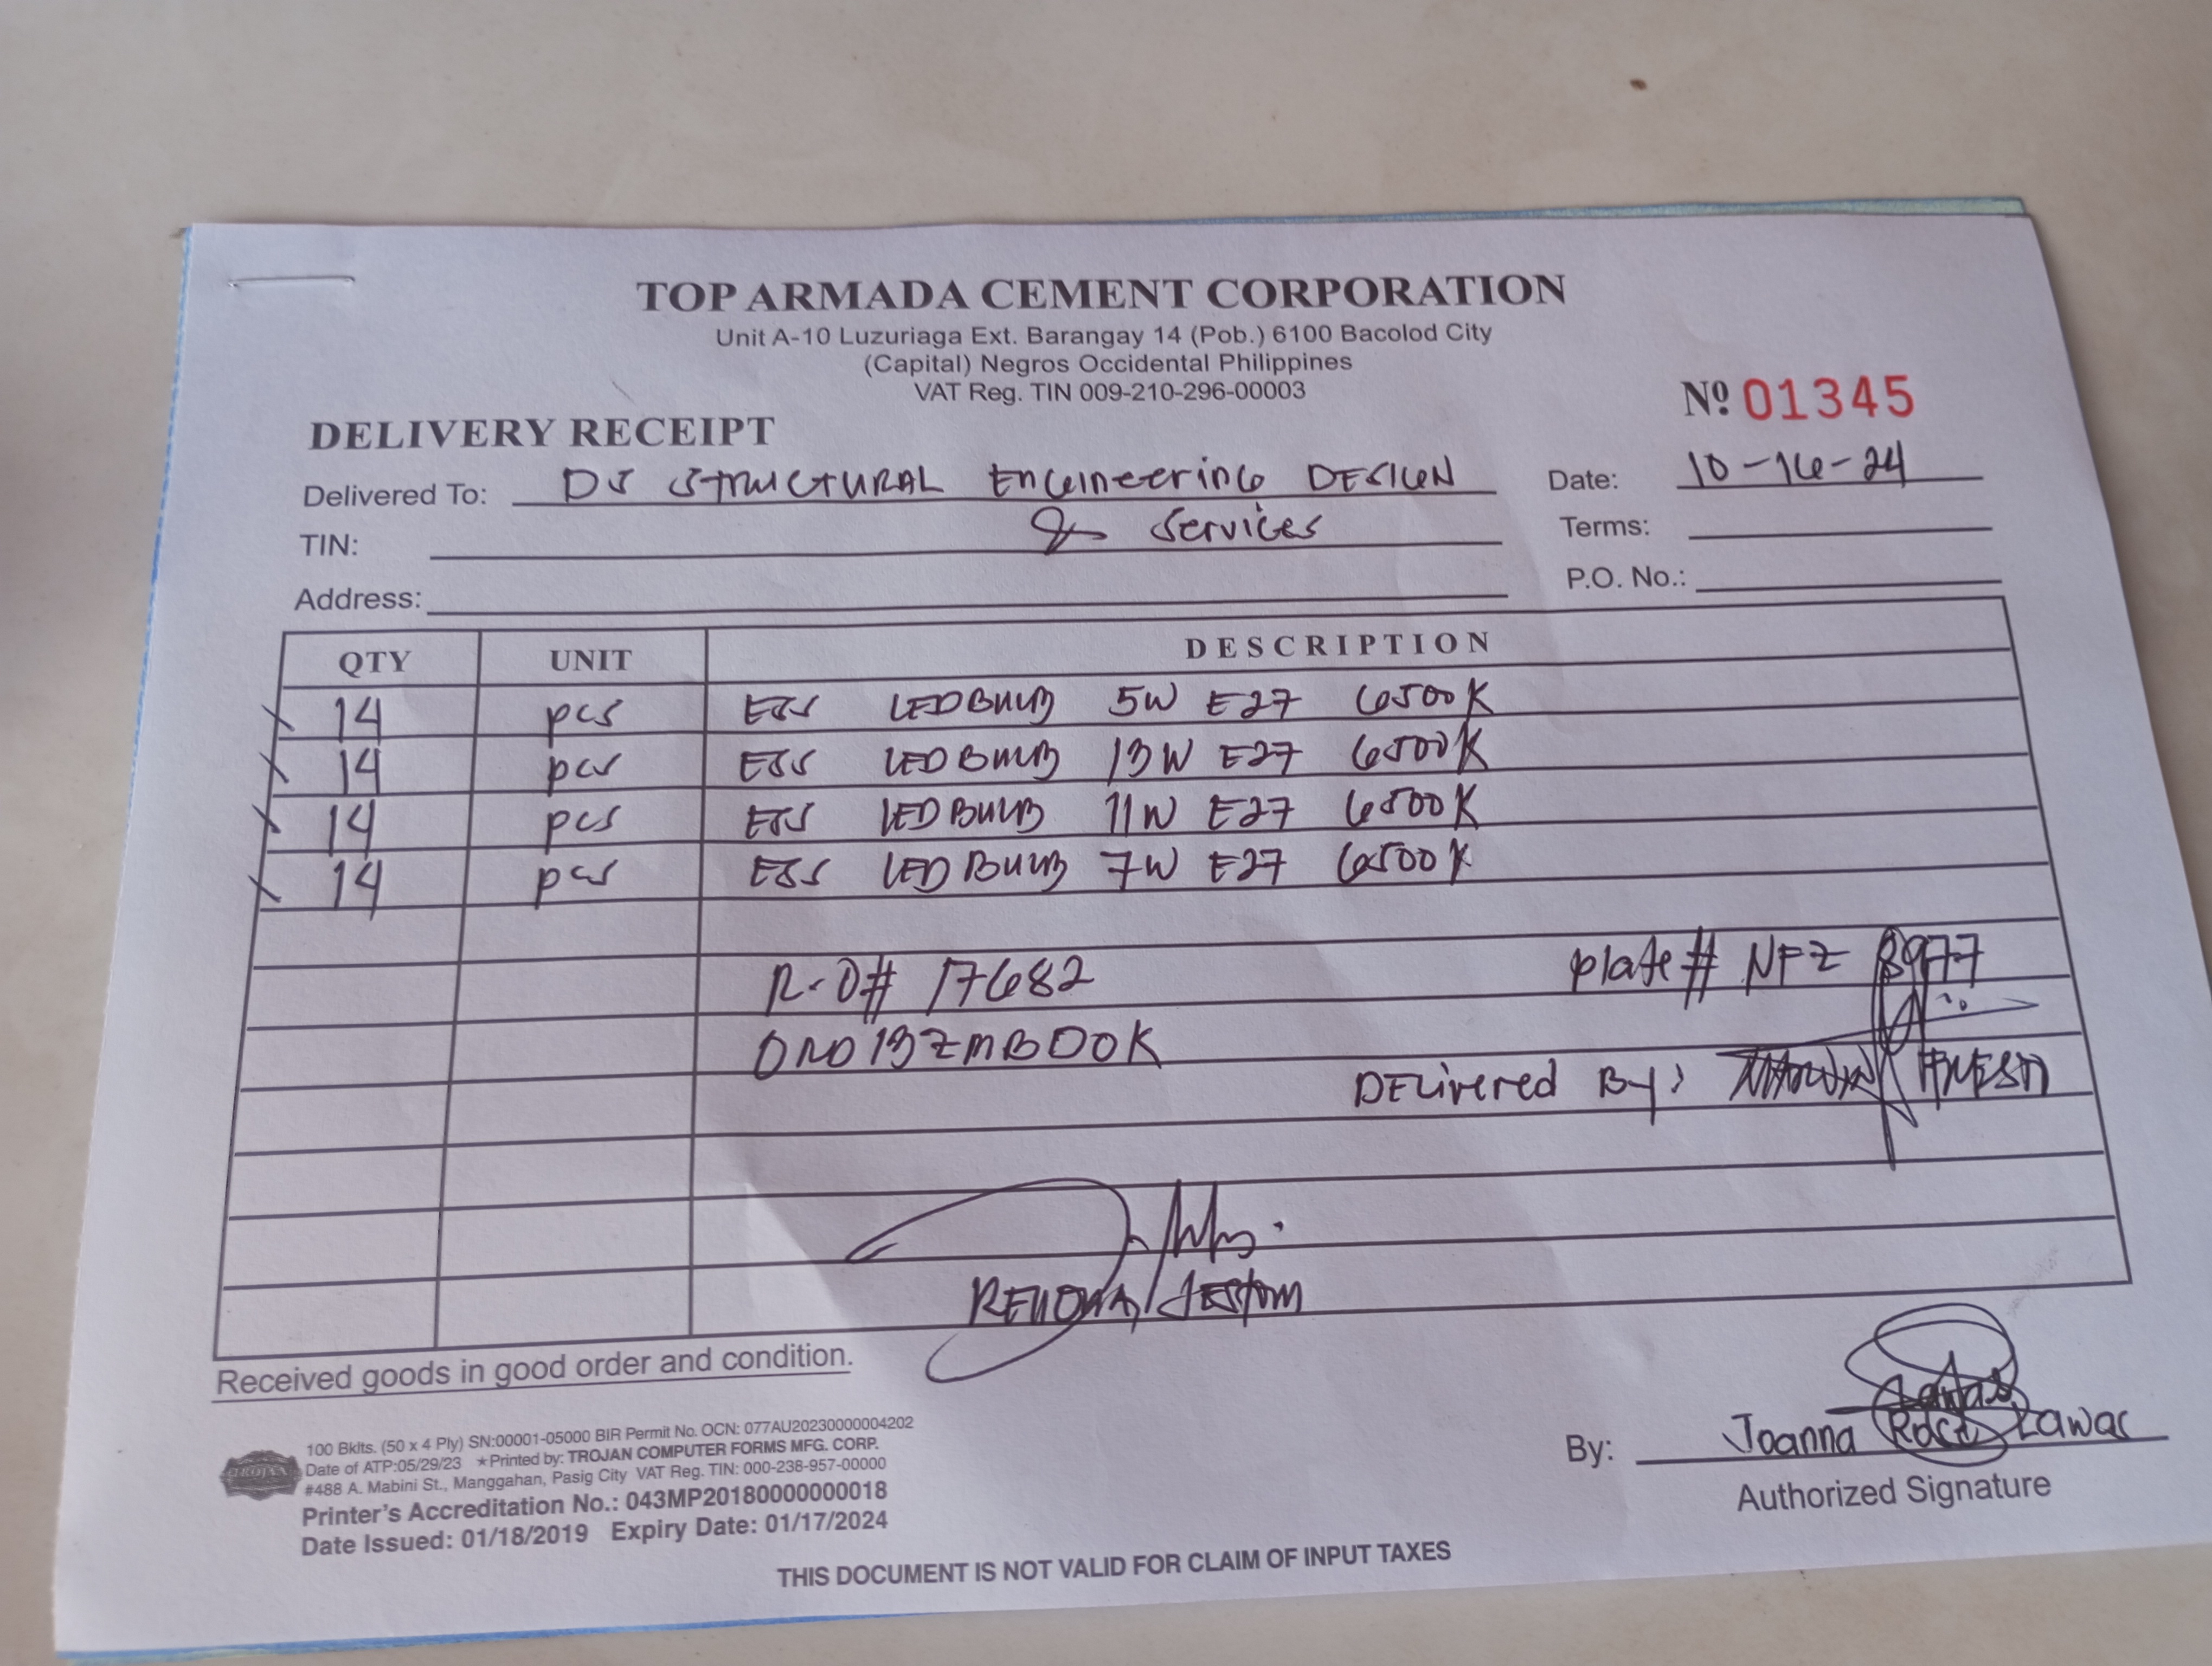 TOP ARMADA CEMENT CORPORATION
Unit A-10 Luzuriaga Ext. Barangay 14 (Pob.) 6100 Bacolod City
(Capital) Negros Occidental Philippines
VAT Reg. TIN 009-210-296-00003
Nº 01345
DELIVERY RECEIPT
Delivered To: DS STRUCTURAL Engineering DESIGN
Date: 10-16-24
TIN: & Services
Terms:
Address:
P.O. No.:
QTY UNIT DESCRIPTION
14 pcs ESS LED BULB 5W E27 6500K
14 pcs ESS LED BULB 13W E27 6500K
14 pcs ESS LED BULB 11W E27 6500K
14 pcs ESS LED BULB 7W E27 6500K
R-O# 17682 plate# NFZ 8977
DELivered By:
Received goods in good order and condition.
100 Bklts. (50 x 4 Ply) SN:00001-05000 BIR Permit No. OCN: 077AU20230000004202
Date of ATP:05/29/23 ★Printed by: TROJAN COMPUTER FORMS MFG. CORP.
#488 A. Mabini St., Manggahan, Pasig City VAT Reg. TIN: 000-238-957-00000
Printer's Accreditation No.: 043MP20180000000018
Date Issued: 01/18/2019 Expiry Date: 01/17/2024
TROJAN
By: Joanna Rose Lawas
Authorized Signature
THIS DOCUMENT IS NOT VALID FOR CLAIM OF INPUT TAXES